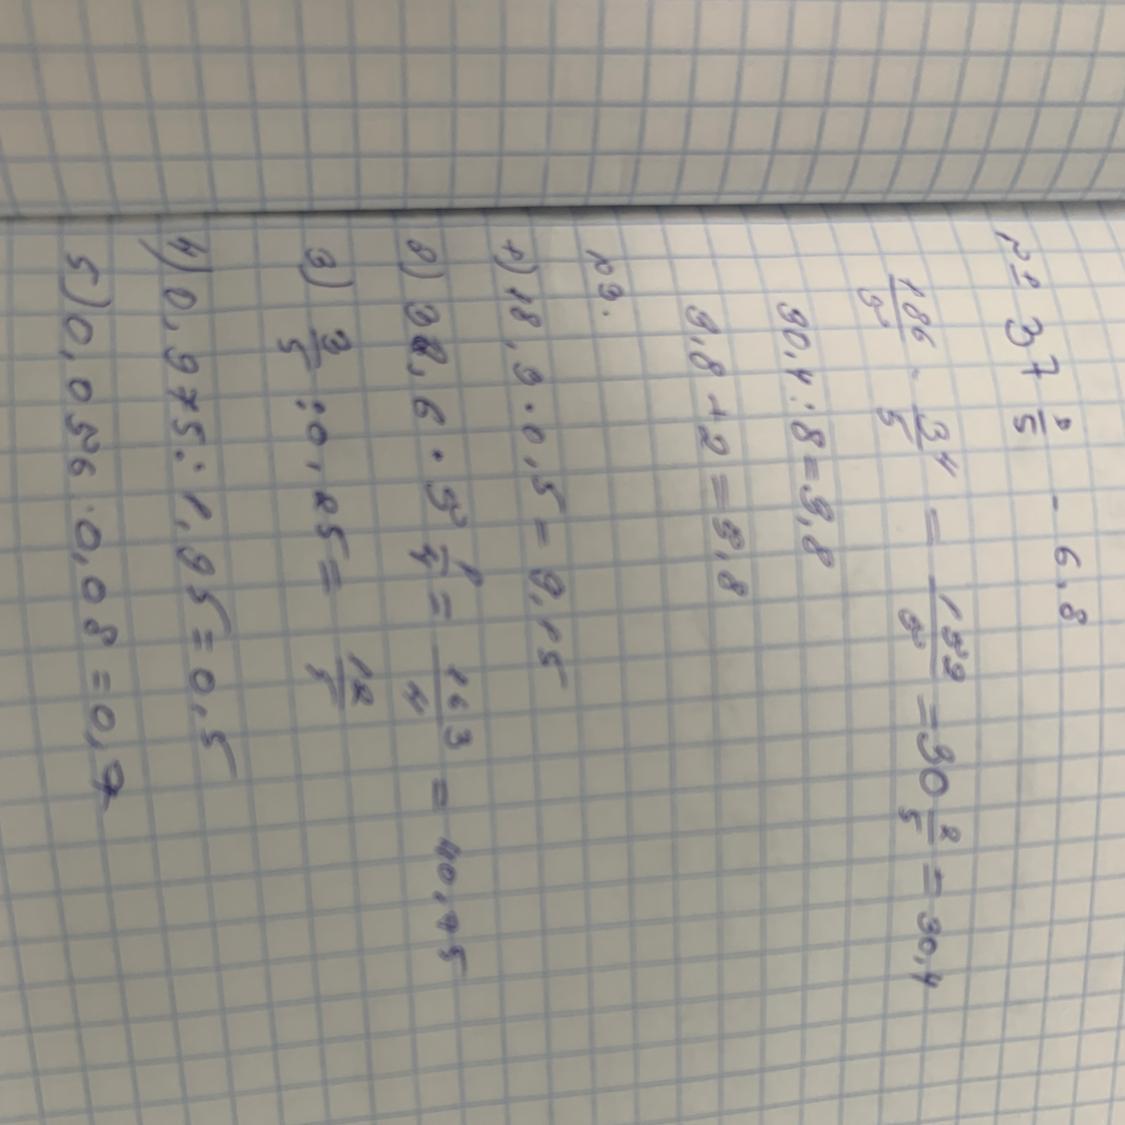 №2 37 1/5 - 6,8
186/5 - 34/5 = 152/5 = 30 2/5 = 30,4
30,4 : 8 = 3,8
3,8 + 2 = 5,8
№3.
1) 18,3 · 0,5 = 9,15
2) 32,6 · 5/4 = 163/4 = 40,75
3) 3/5 : 0,25 = 12/5
4) 0,975 : 1,95 = 0,5
5) 0,056 : 0,08 = 0,7